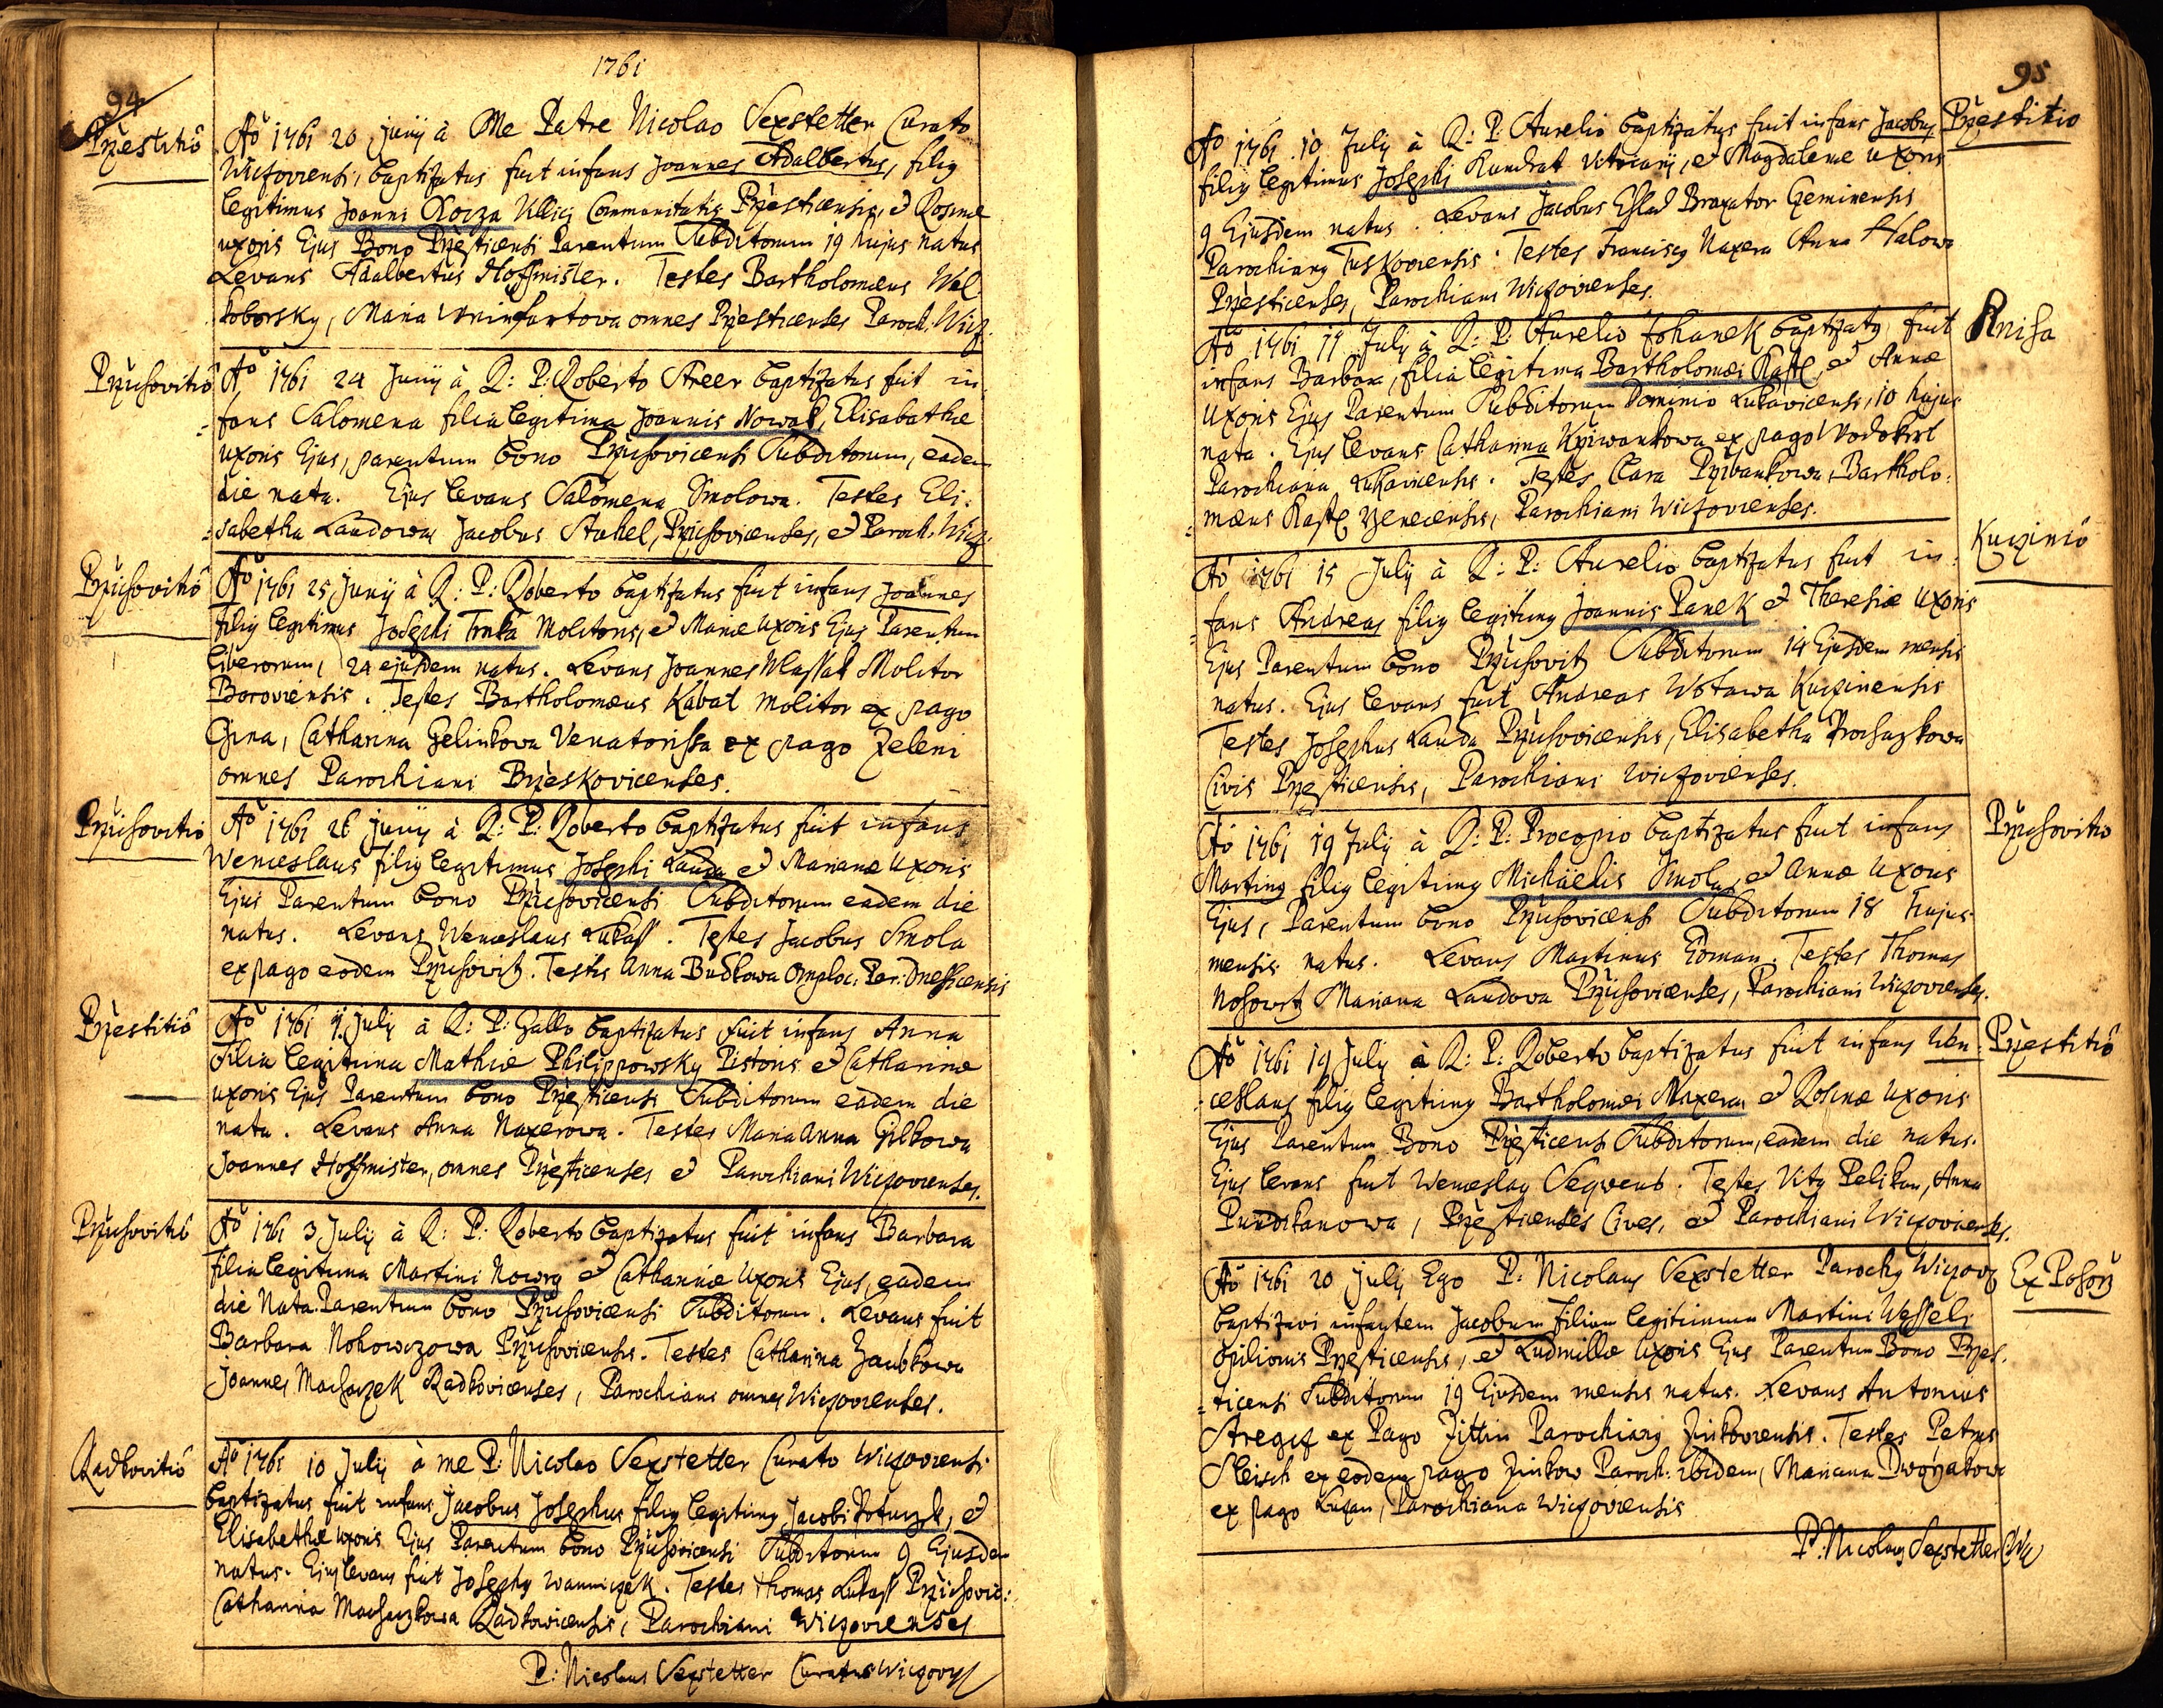 1761
94
Pr̃estitiô
Aô 1761 20 Junij à Me Patre Nicolao Sexstetter Curato
Wiczoviensi, baptizatus fuit infans Joannes Adalbertus, filiq
legitimus Joanni Communitatis Pr̃esticensis, et Rosinæ
uxoris Ejus Bono Pr̃esticensi Parentum Subditorum 19 hujus natus
Levans Adalbertus Hoffmister. Testes Bartholomæus Wal
koborsky, Maria omnes Pr̃esticenses Paroch. Wicz.
Pr̃ichovitiô
Aô 1761 24 Junij à R: P: Roberto Streer baptizatus fuit in
fans Salomena filia legitima Joannis Nowak, Elisabathæ
uxoris Ejus, parentum bono Pr̃ichovicensi Subditorum, eadem
die nata. Ejus levans Salomena Smolowa. Testes Eli:
sabetha Laudowa, Jacobus Stuhel, Pr̃ichovicenses, et Paroch. Wicz.
Pr̃ichovitiô
Aô 1761 25 Junij à R: P: Roberto baptizatus fuit infans Joannes
filiq legitimus Josephi Trnka Molitoris, et Mariæ uxoris Ejus Parentum
liberorum, 24 ejusdem natus. Levans Joannes Wlassak Molitor
Boroviensis. Testes Bartholomæus Kabat molitor ex pago
Gina, Catharina Gelinkowa Venatorissa ex pago Zeleni
omnes Parochiani Br̃eskovicenses.
Pr̃ichovitiô
Aô 1761 26 Junij à R: P: Roberto baptizatus fuit infans
Wenceslaus filiq legitimus Josephi Lauda et Marianæ uxoris
Ejus Parentum bono Pr̃ichovicensi Subditorum eadem die
natus. Levans Wenceslaus Lukass. Testes Jacobus Smola
ex pago eodem Pr̃ichovitz. Testis Anna Budkowa Par. Dnessicensis
Pr̃estitiô
Aô 1761 July à R: P: Gallo baptizatus fuit infans Anna
filia legitima Mathiæ Philippowsky Pistoris et Catharinæ
uxoris Ejus Parentum bono Pr̃esticensi Subditorum eadem die
nata. Levans Anna Naxerowa. Testes Maria Anna Gilkowa
Joannes Hoffmister, omnes Pr̃esticenses et Parochiani Wiczovienses.
Pr̃ichovitiô
Aô 1761 3 July à R: P: Roberto baptizatus fuit infans Barbara
filia legitima Martini Nowrq et Catharinæ uxoris Ejus, eadem
die Nata. Parentum bono Pr̃ichovicensi Subditorum. Levans fuit
Barbara Nohowczowa Pr̃ichovicensis. Testes Catharina Zaubkowa
Joannes Machaczek Radkovicenses, Parochiani omnes Wiczovienses.
Radkovitiô
Aô 1761 10 July à me P: Nicolao Sexstetter Curato Wiczoviensi
baptizatus fuit infans Jacobus Josephus filiq legitimq Jacobi et
Elisabethæ uxoris Ejus Parentum bono Pr̃ichovicensi Subditorum 9 Ejusdem
natus. Ejus levans fuit Josephq Wanniczek. Testes Thomas Lukass Pr̃ichovic:
Catharina Machaczkowa Radkowicensis, Parochiani Wiczovienses
P: Nicolaus Sexstetter Curatus Wiczovy
95
Pr̃estitio
Aô 1761 10 July à R: P: Aurelio baptizatus fuit infans Jacobus
filiq legitimus Josephi Kundrat Vitriarij, et Magdalenæ uxoris
9 Ejusdem natus. Levans Jacobus Braxator Geminensis
Parochianq Tuskoviensis. Testes Franciscq Naxera Anna Halowa
Pr̃esticenses, Parochiani Wiczovienses.
Knisa
Aô 1761 11 July à R: P: Aurelio Johanek baptizatq fuit
infans Barbara, filia legitima Bartholomæi Kastl, et Annæ
Uxoris Ejus Parentum Subditorum Dominio Lukavicensi, 10 hujus
nata. Ejus levans Catharina Kr̃iwankowa ex pago Wodokrt
Parochiana Lukavicensis. Testes Clara Pr̃ibankowa, Bartholo:
mæus Kastl Parochiani Wiczovienses.
Kuczinio
Aô 1761 15 July à R: P: Aurelio baptizatus fuit in:
fans Andreas filiq legitimq Joannis Panek et Theresiæ Uxoris
Ejus Parentum bono Pr̃ichovitz Subditorum 14 Ejusdem mensis
natus. Ejus levans fuit Andreas Wotawa Kuczinensis
Testes Josephus Lauda Pr̃ichovicensis, Elisabetha Prochazkowa
Civis Pr̃esticensis, Parochiani Wiczovienses.
Pr̃ichovitio
Aô 1761 19 July à R: P: Procopio baptizatus fuit infans
Martinq filiq legitimq Michäelis Smola, et Annæ Uxoris
Ejus, Parentum bono Pr̃ichovicensi Subditorum 18 hujus
mensis natus. Levans Martinus Toman. Testes Thomas
Nohowtz Mariana Laudova Pr̃ichovicenses, Parochiani Wiczovienses.
Pr̃estitiô
Aô 1761 19 July à R: P: Roberto baptizatus fuit infans Wen:
ceslaus filiq legitimq Bartholomæi Naxera et Rosinæ Uxoris
Ejus Parentum Bono Pr̃esticensi Subditorum, eadem die natus.
Ejus levans fuit Wenceslaq Segvens. Testes Vitq Pelikan, Anna
Pundikanowa, Pr̃esticenses Cives, et Parochiani Wiczovienses.
Ex Posory
Aô 1761 20 July Ego P: Nicolaus Sexstetter Parochq Wiczovy
baptizavi infantem Jacobum filium legitimum Martini Wessely
Opilionis Pr̃esticensis, et Ludmillæ Uxoris Ejus Parentum Bono Pr̃es:
ticensi Subditorum 19 Ejusdem mensis natus. Levans Antonius
Stregcz ex Pago Zittin Parochianq Zinkoviensis. Testes Petrus
Sleisch ex eodem pago Zinkow Paroch: ibidem, Mariana Dwor̃akowa
ex pago Luzan, Parochiana Wiczoviensis
P: Nicolaus Sexstetter